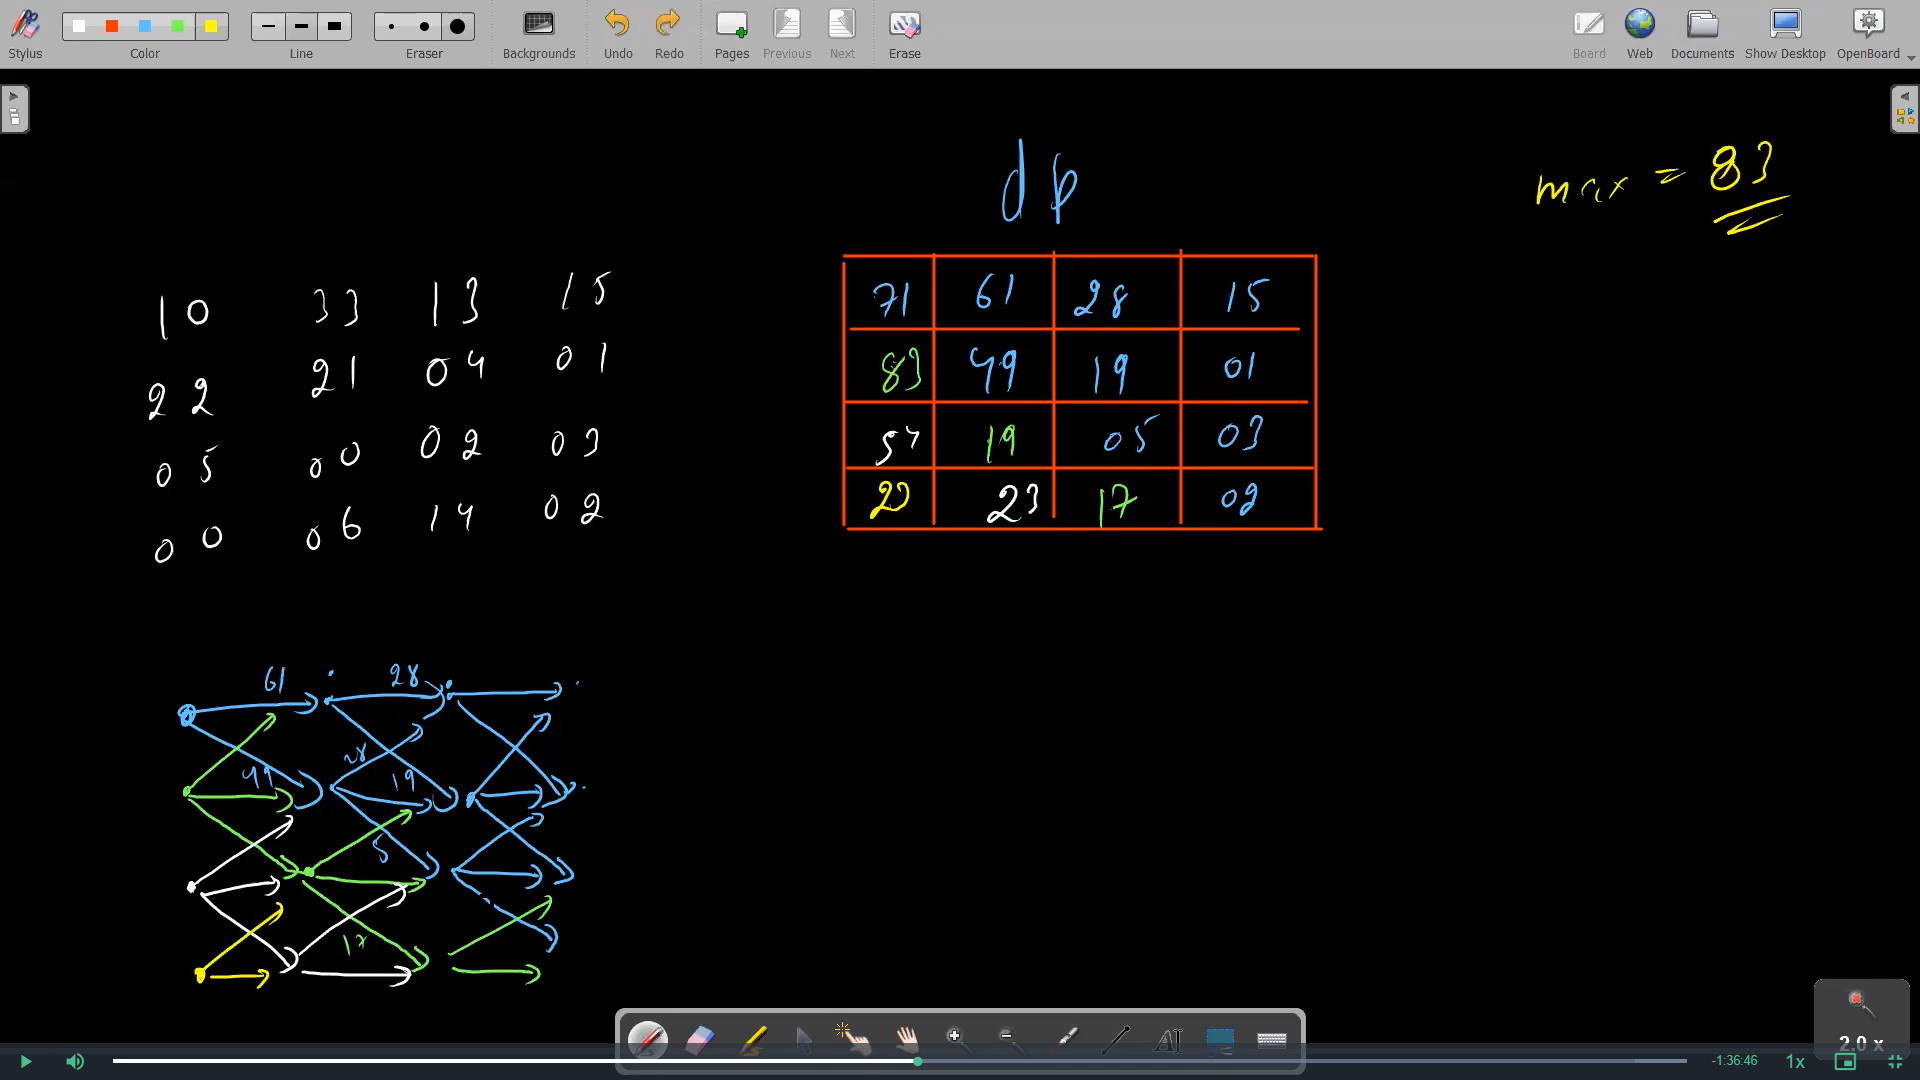 Stylus Color Line Eraser Backgrounds Undo Redo Pages Previous Next Erase Board Web Documents Show Desktop OpenBoard
dp
max = 83
10 33 13 15
22 21 04 01
05 00 02 03
00 06 14 02
71 61 28 15
83 49 19 01
54 19 05 03
23 23 17 02
61 28
28
49 19
5
17
2.0 x
-1:36:46 1x